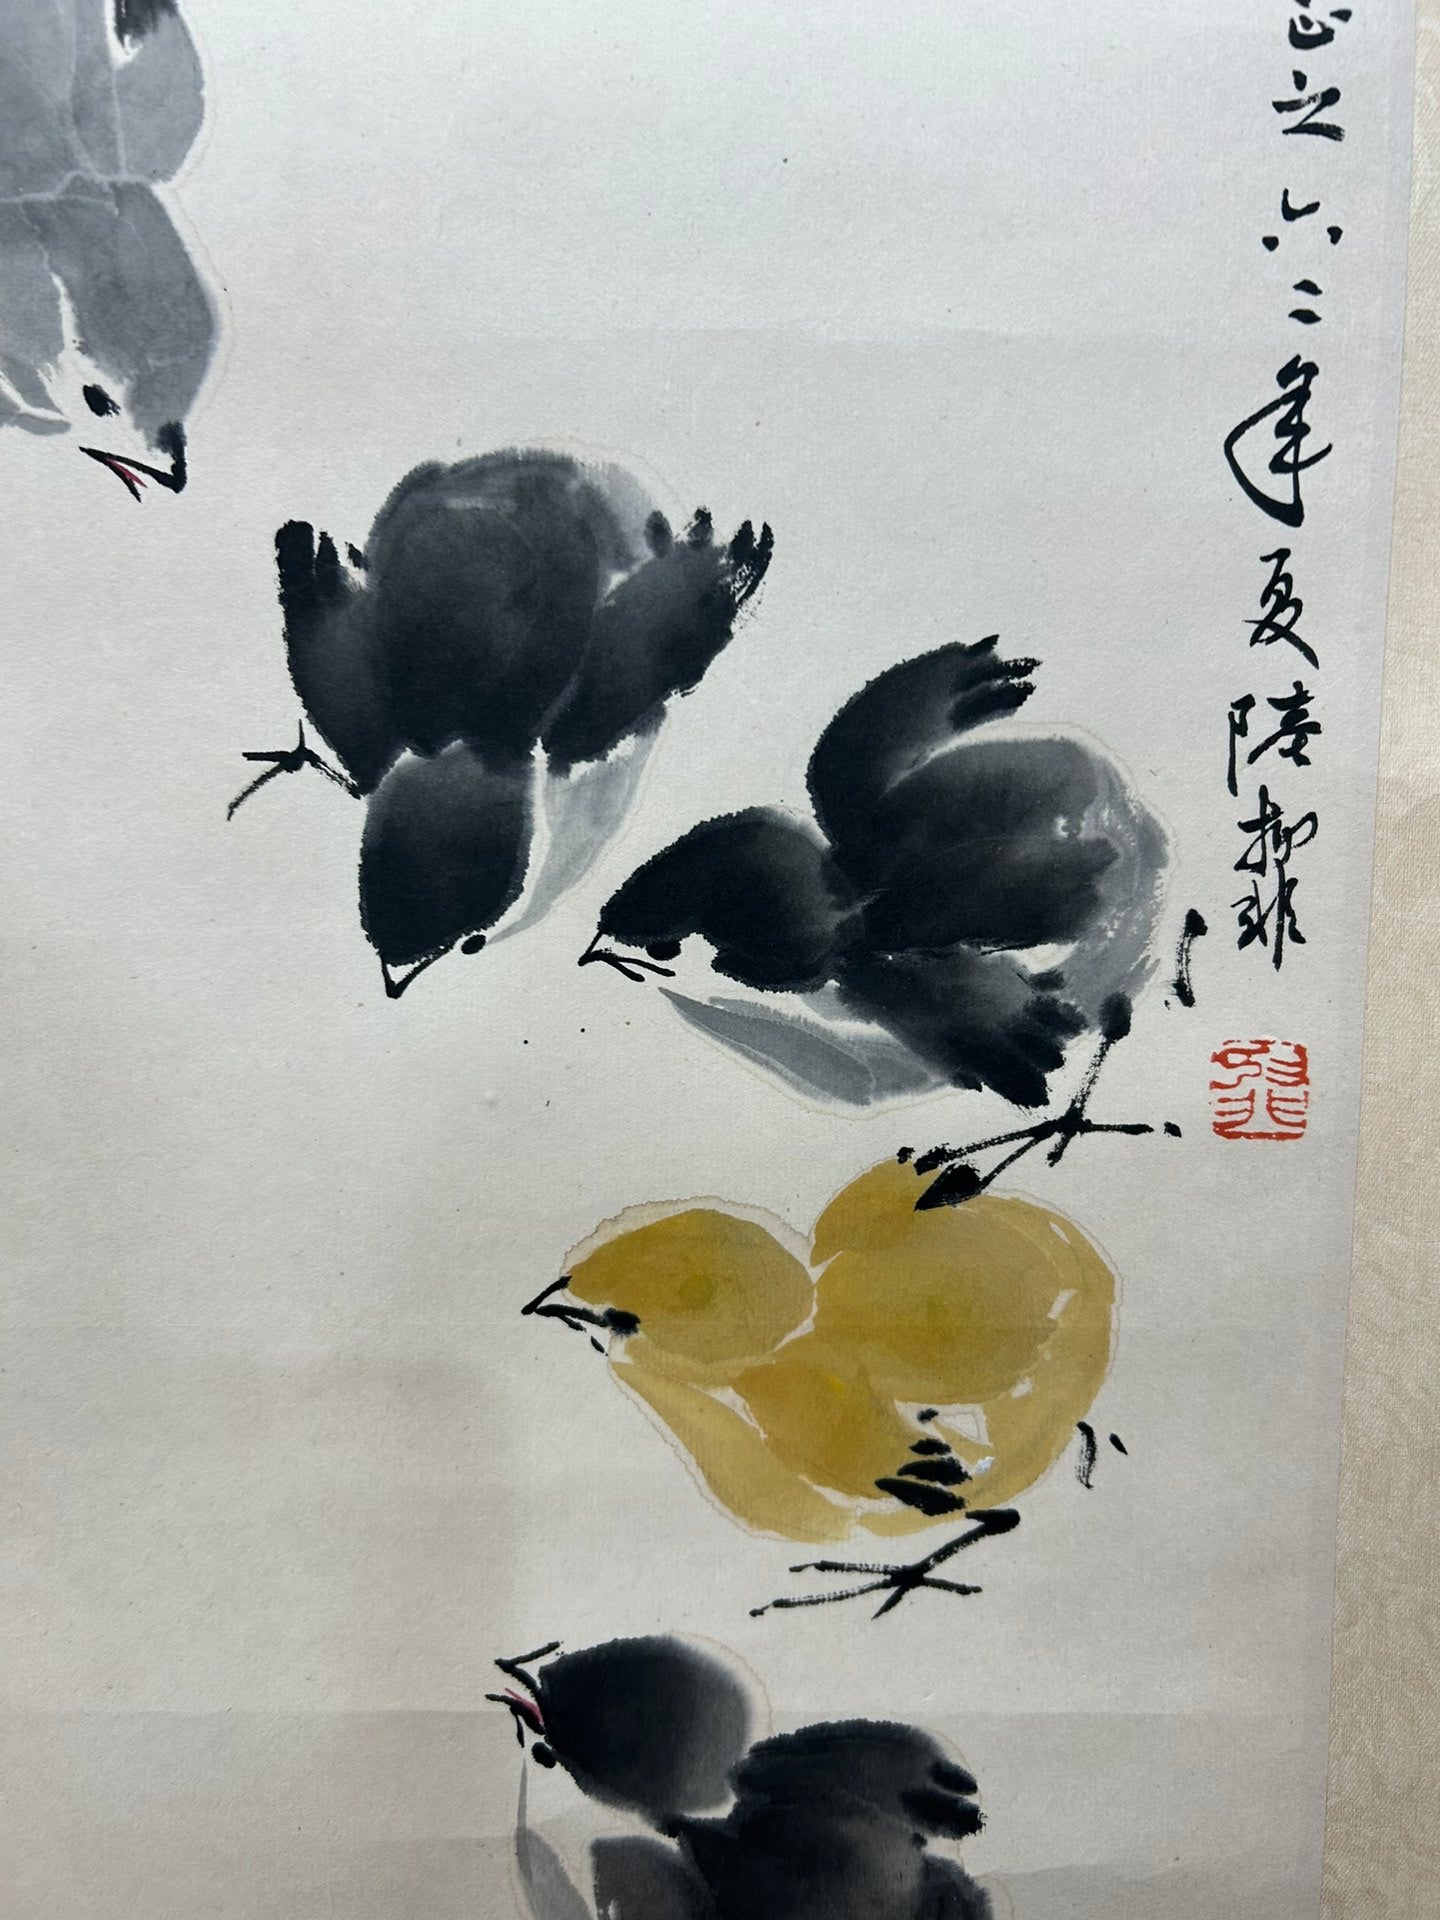 正之六二年夏陸抑非